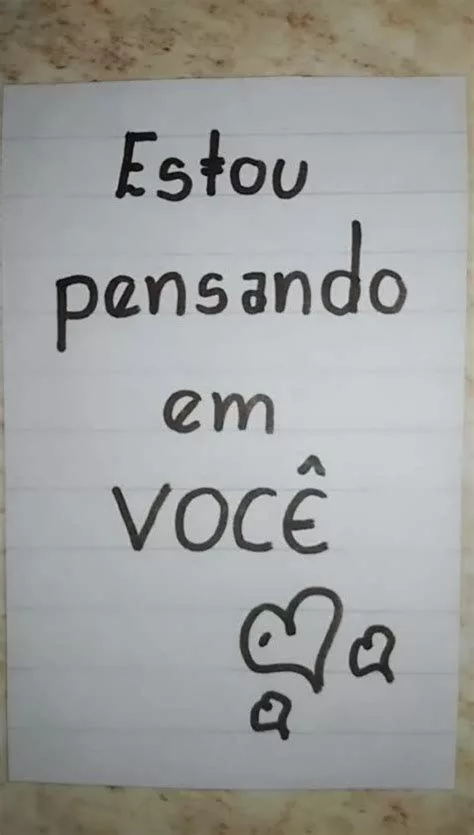 Estou
pensando
em
VOCÊ